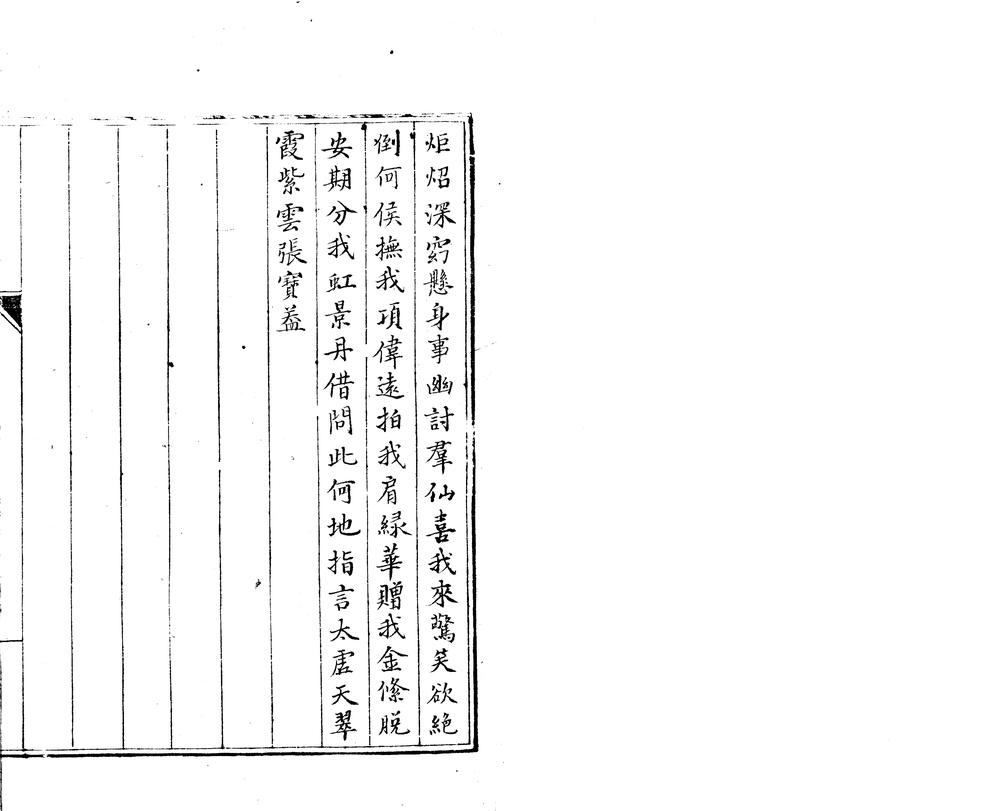 炬炤深窈懸身事幽討羣仙喜我來驚笑欲絶
倒何侯撫我項偉遠拍我肩緑華贈我金絛脱
安期分我虹景丹借問此何地指言太虛天翠
霞紫雲張寶葢